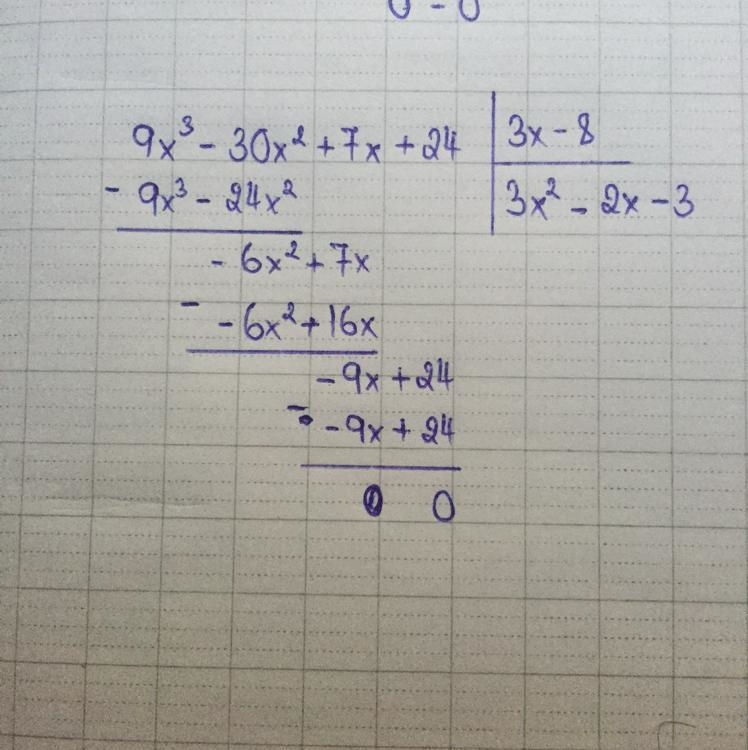 0 - 0
9x³ - 30x² + 7x + 24 | 3x - 8
- 9x³ - 24x² | 3x² - 2x - 3
- 6x² + 7x
- - 6x² + 16x
- 9x + 24
- - 9x + 24
0 0